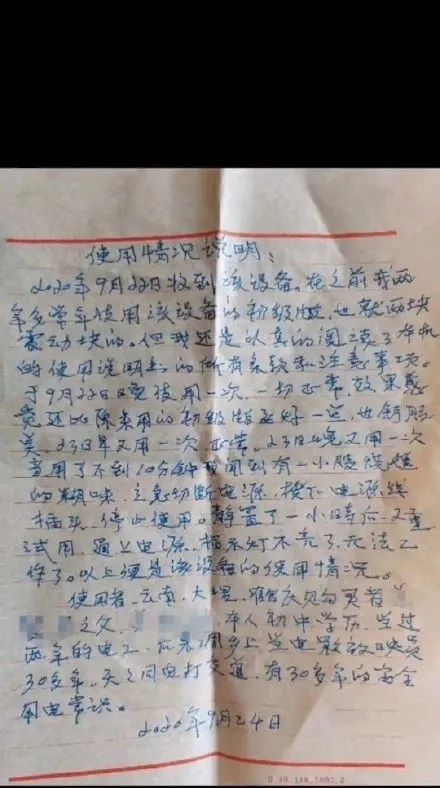 使用情况说明：
2020年9月22日收到该设备。在之前我两
年多常年使用该设备的初级版，也就两块
震动块的。但我还是认真的阅读了本机
的使用说明书的所有条款和注意事项。
于9月22日晚使用一次，一切正常，效果感
觉还比原来用的初级版更好一点，也舒服
美，23日早又用一次正常。23日晚又用一次
当用了不到10分钟闻到有一小股
的糊味，立急切断电源，拨下电源线
插头，停止使用。静置了一小时后，又重
试用，通上电源，指示灯不亮了，无法工
作了。以上便是该设备的使用情况。
使用者，云南，大理，
之父，本人初中学历，当过
两年的电工，上当电影放映员
30多年，天天同电打交道，有30多年的安全
用电常识。
2020年9月24日